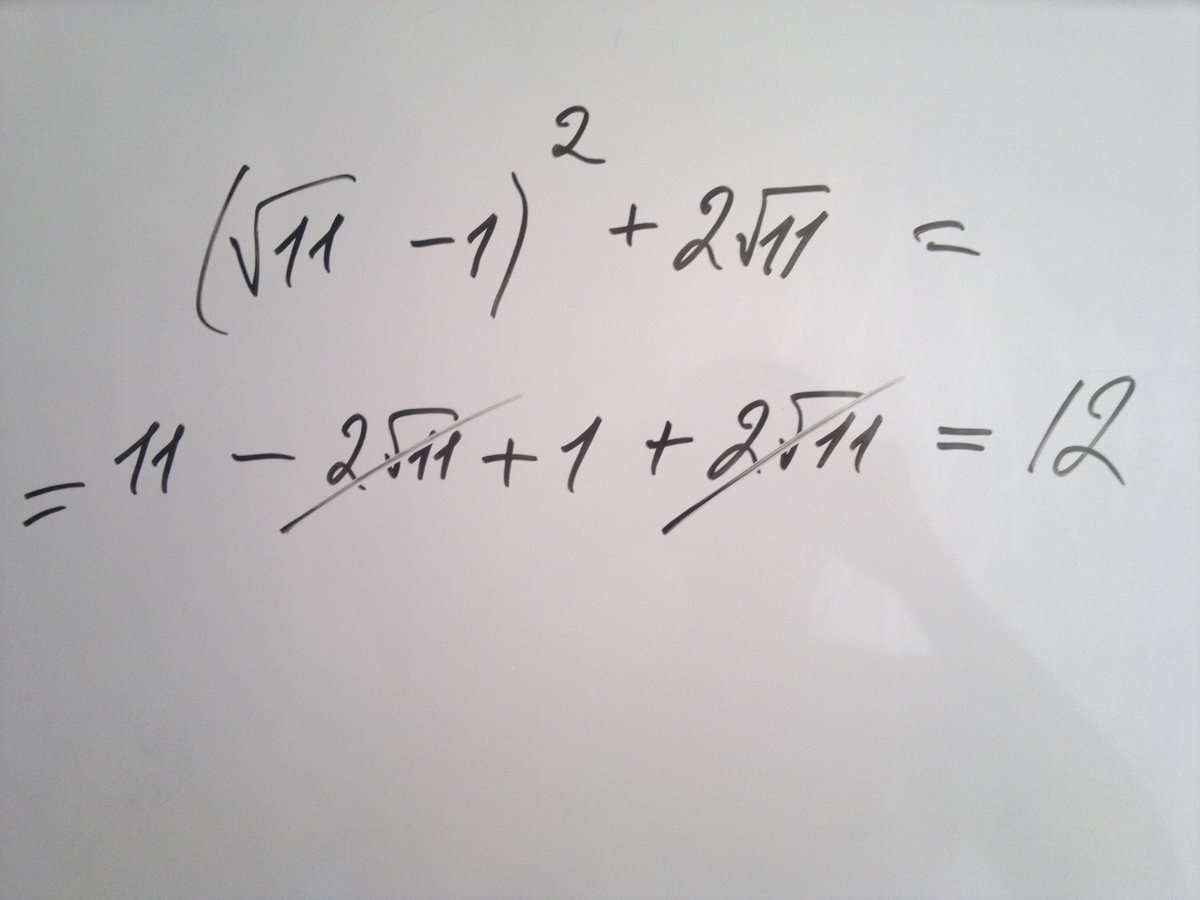 (√11 - 1)² + 2√11 =
= 11 - 2√11 + 1 + 2√11 = 12